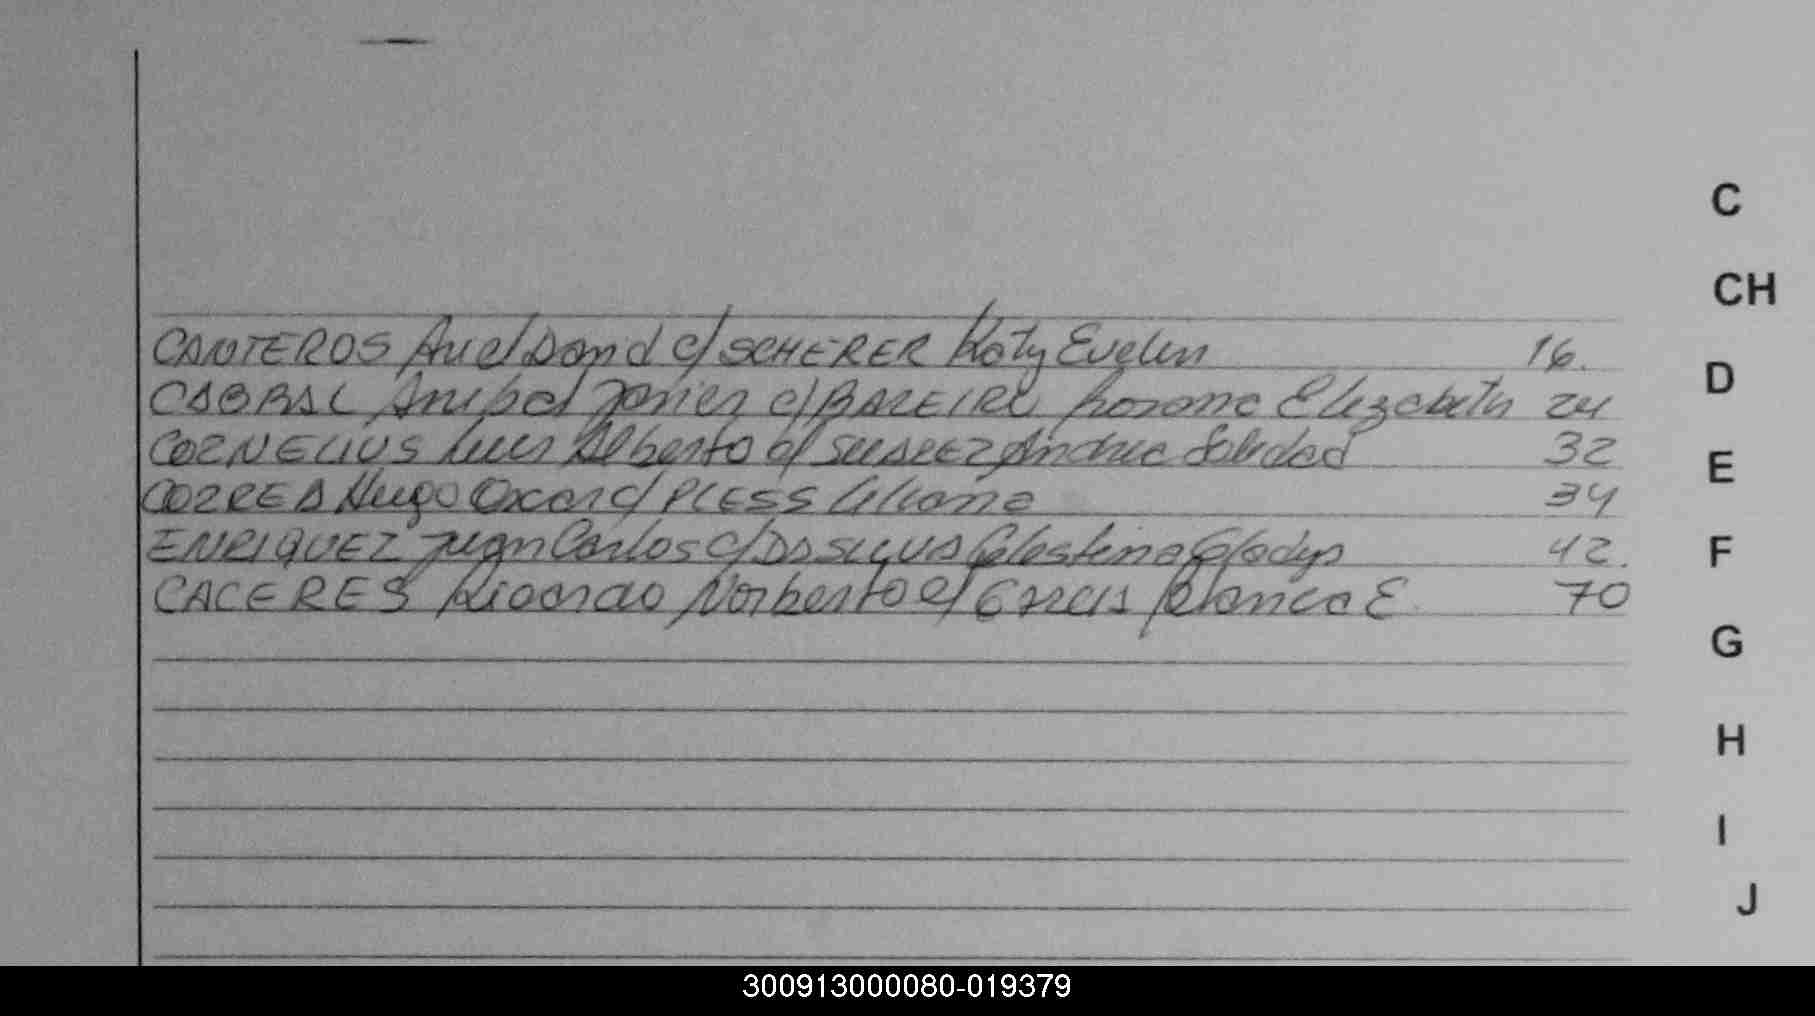 C
CH
CANTEROS Ariel David c/ SCHERER Katy Evelin 16.
D
CABRAL Anibal Javier c/ BAREIRO Rosana Elizabeth 24
CORNELIUS Luis Alberto c/ SUAREZ Andrea Soledad 32
E
CORREA Hugo Oscar c/ PLESS Liliana 34
ENRIQUEZ Juan Carlos c/ DA SILVA Celestina Gladys 42.
F
CACERES Ricardo Norberto c/ GARCIA Blanca E. 70
G
H
I
J
300913000080-019379